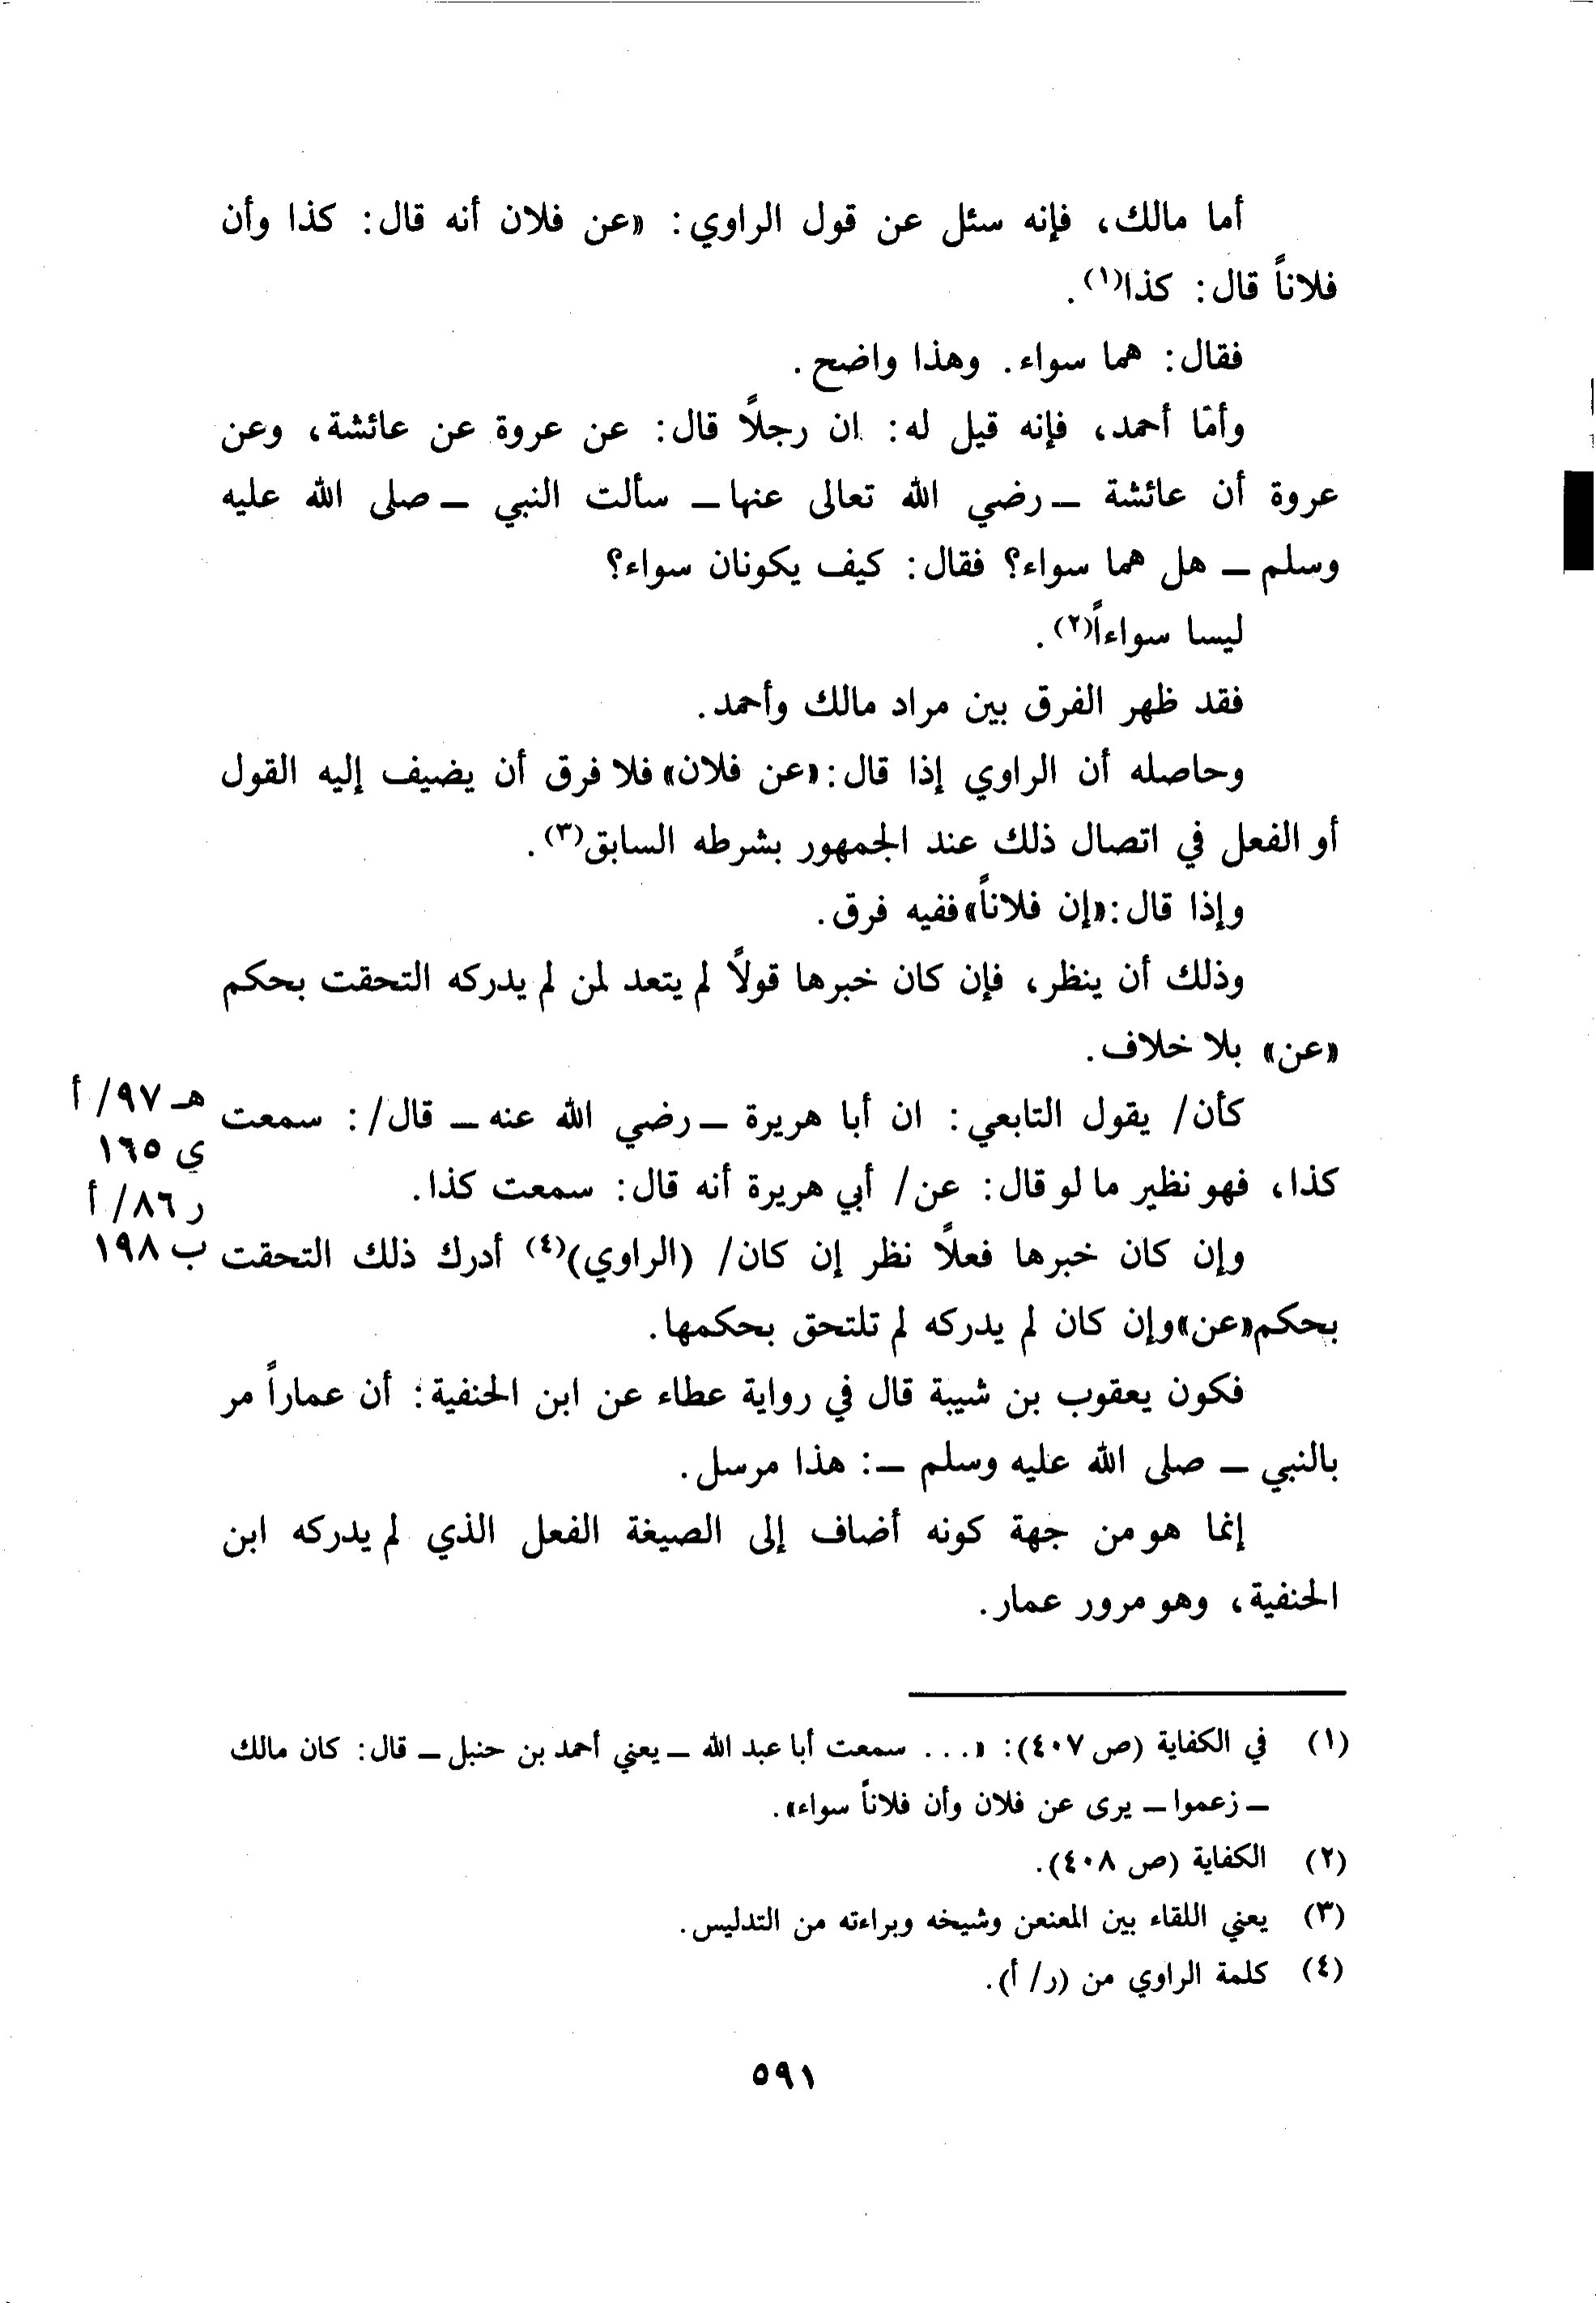 أما مالك، فإنه سئل عن قول الراوي: «عن فلان أنه قال: كذا وأن
فلاناً قال: كذا(١).
فقال: هما سواء. وهذا واضح.
وأمّا أحمد، فإنه قيل له: ان رجلاً قال: عن عروة عن عائشة، وعن
عروة أن عائشة ــ رضي الله تعالى عنها ــ سألت النبي ــ صلى الله عليه
وسلم ــ هل هما سواء؟ فقال: كيف يكونان سواء؟
ليسا سواءاً(٢).
فقد ظهر الفرق بين مراد مالك وأحمد.
وحاصله أن الراوي إذا قال: «عن فلان» فلا فرق أن يضيف إليه القول
أو الفعل في اتصال ذلك عند الجمهور بشرطه السابق(٣).
وإذا قال: «إن فلاناً» ففيه فرق.
وذلك أن ينظر، فإن كان خبرها قولاً لم يتعد لمن لم يدركه التحقت بحكم
«عن» بلا خلاف.
كأن/ يقول التابعي: ان أبا هريرة ــ رضي الله عنه ــ قال/: سمعت هـ ٩٧/ أ
ي ١٦٥
كذا، فهو نظير ما لو قال: عن/ أبي هريرة أنه قال: سمعت كذا. ر ٨٦/ أ
وإن كان خبرها فعلاً نظر إن كان/ (الراوي)(٤) أدرك ذلك التحقت ب ١٩٨
بحكم «عن» وإن كان لم يدركه لم تلتحق بحكمها.
فكون يعقوب بن شيبة قال في رواية عطاء عن ابن الحنفية: أن عماراً مر
بالنبي ــ صلى الله عليه وسلم ــ: هذا مرسل.
إنما هو من جهة كونه أضاف إلى الصيغة الفعل الذي لم يدركه ابن
الحنفية، وهو مرور عمار.
(١) في الكفاية (ص ٤٠٧): «... سمعت أبا عبد الله ــ يعني أحمد بن حنبل ــ قال: كان مالك
ــ زعموا ــ يرى عن فلان وأن فلاناً سواء».
(٢) الكفاية (ص ٤٠٨).
(٣) يعني اللقاء بين المعنعن وشيخه وبراءته من التدليس.
(٤) كلمة الراوي من (ر/ أ).
٥٩١